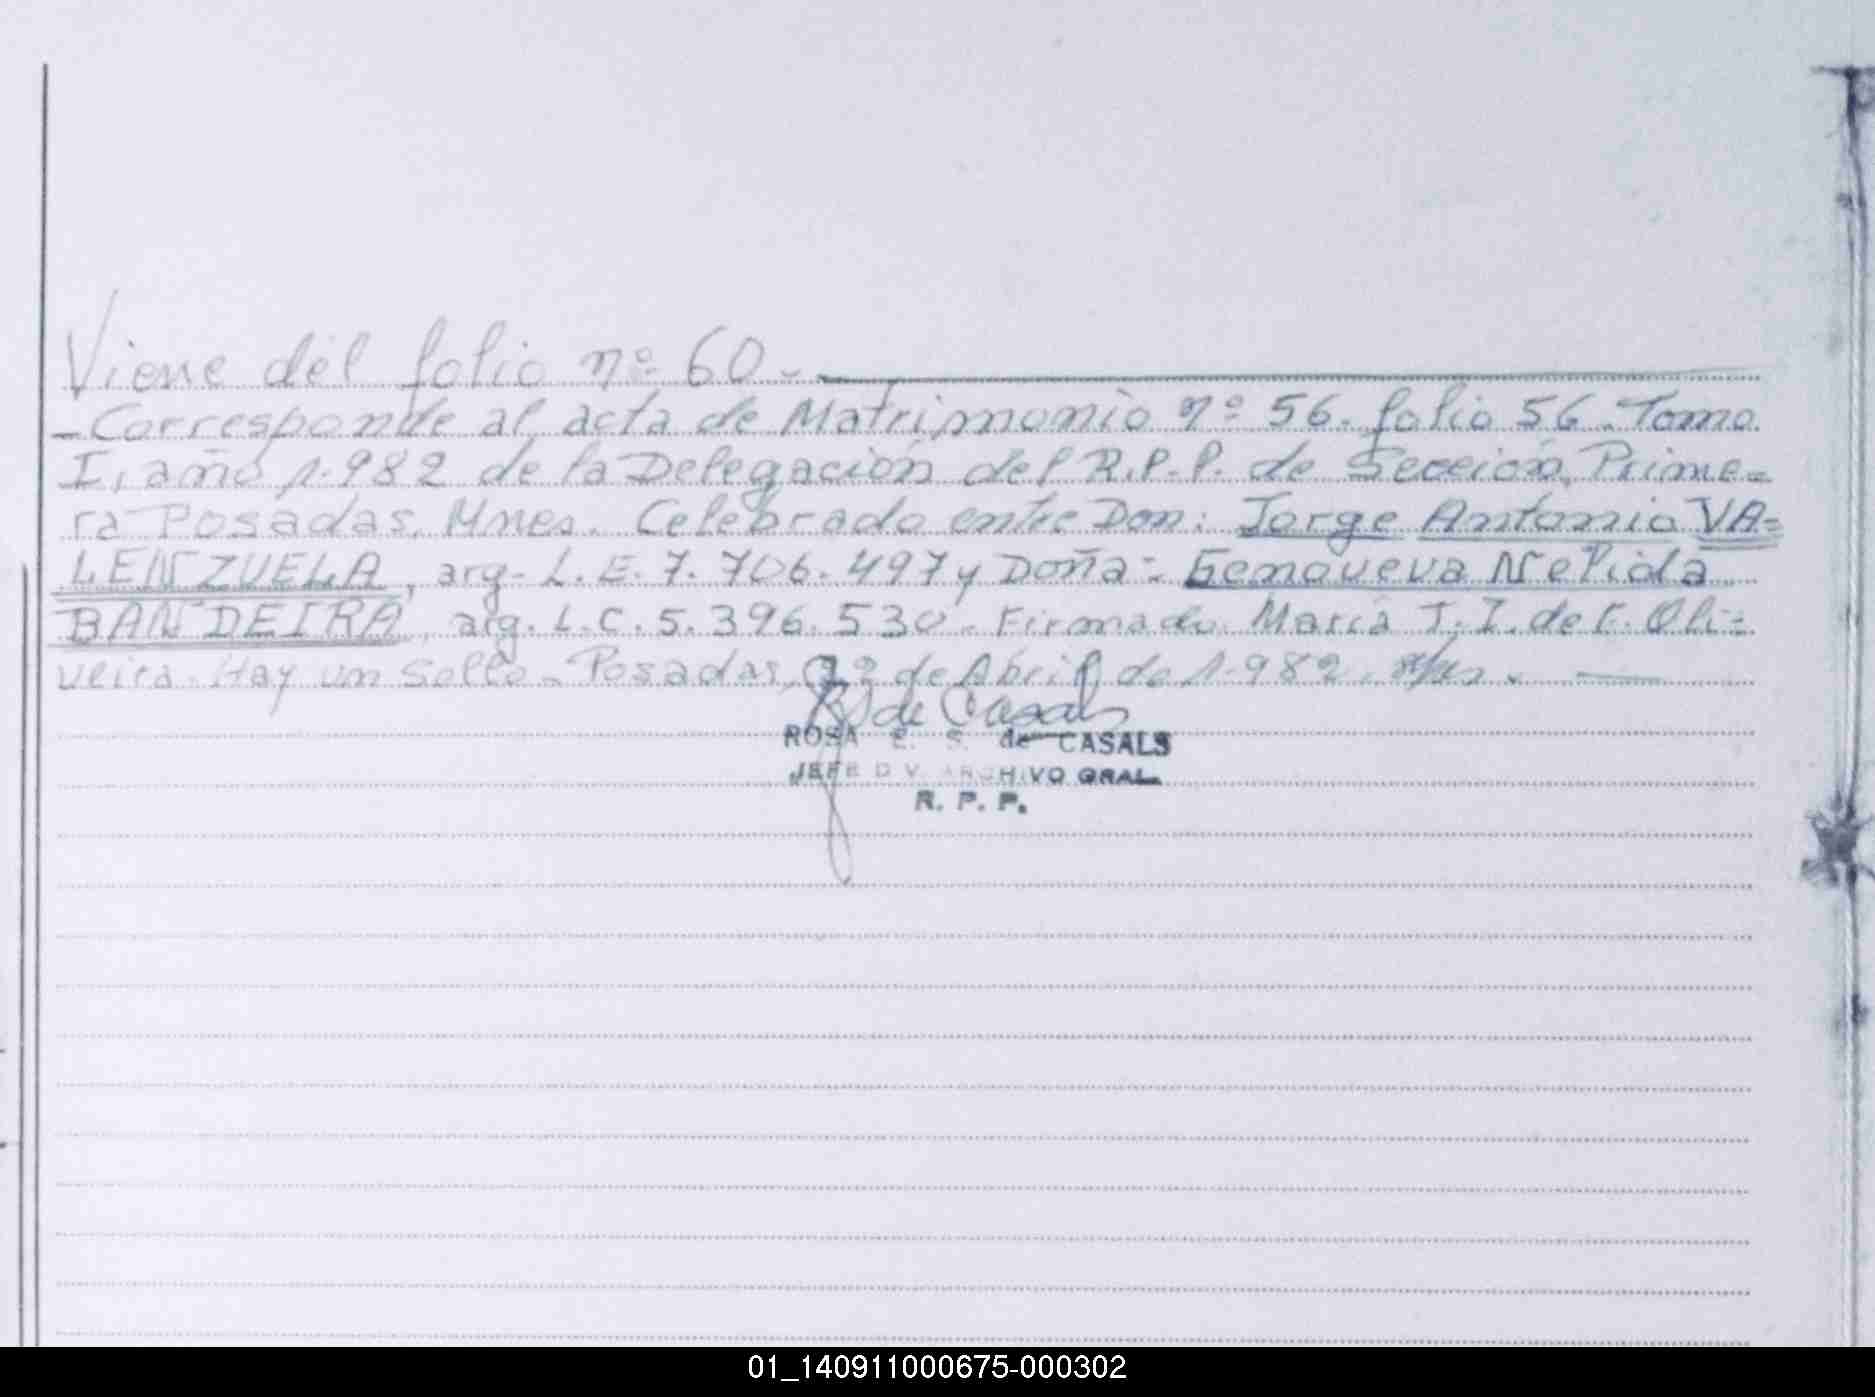 Viene del folio nº 60.-
-Corresponde al acta de Matrimonio nº 56. folio 56. Tomo
I, año 1.982 de la Delegación del R.P.P. de Sección Prime-
ra Posadas, Mnes. Celebrado entre Don: Jorge Antonio VA=
LENZUELA, arg. L.E. 7.706.497 y Doña: Genoveva Nelida
BANDEIRA, arg. L.C. 5.396.530. Firmado María T. I. de F. Oli=
veira. Hay un Sello. Posadas, de Abril de 1.982.
de Casals
ROSA E. S. de CASALS
JEFE DIV. ARCHIVO GRAL.
R. P. P.
01_140911000675-000302